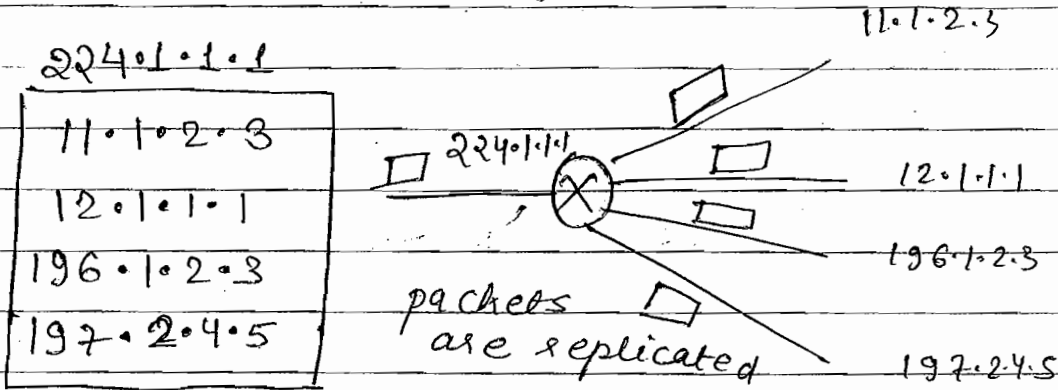 224.1.1.1
11.1.2.3
12.1.1.1
196.1.2.3
197.2.4.5
224.1.1.1
11.1.2.3
12.1.1.1
196.1.2.3
197.2.4.5
packets
are replicated